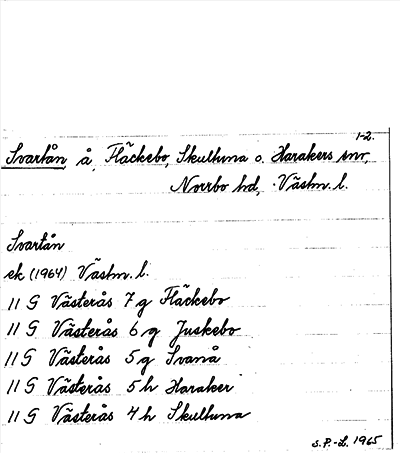 1-2.
Svartån, å, Fläckebo, Skultuna o. Harakers snr,
Norrbo hd, Västm. l.
Svartån
ek (1964) Västm. l.
11 G Västerås 7 g Fläckebo
11 G Västerås 6 g Juskebo
11 G Västerås 5 g Svanå
11 G Västerås 5 h Haraker
11 G Västerås 4 h Skultuna
S.P.-L. 1965